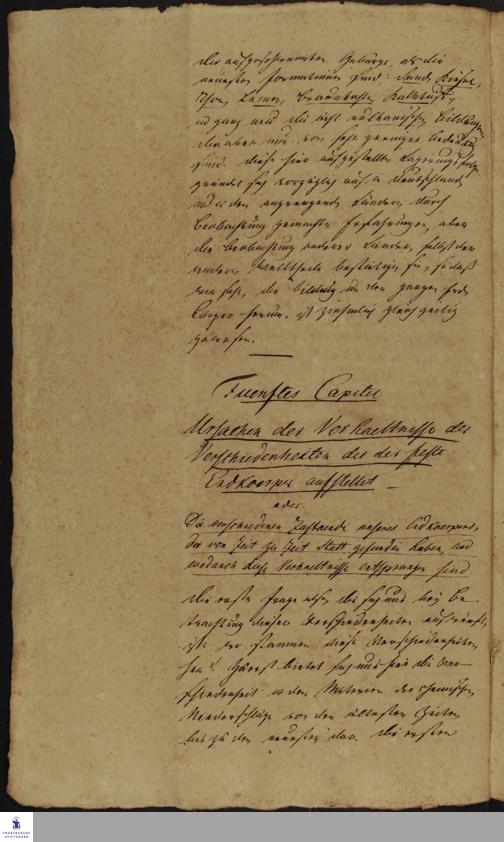 der aufgeschwemmten Gebürge, als die
neuesten Formationen sind: Sand, Kiesel,
Thon, Lemm, Braunkohle, Kalktuff,
und ganz neu die nicht vulkanischen
die aber nur von sehr geringer
sind. Diese hier aufgestellte Lagerungsfolge
gründet sich vorzüglich auf in Deutschland
und in den angrenzenden Ländern durch
Beobachtung gemachte Erfahrungen, aber
die Beobachtung anderer Länder, selbst der
andern Welttheile bestätigen sie, so daß
man sieht, die Bildung um den ganzen Erd
Cörper herum ist ziehmlich gleichzeitig
gewesen.
Fuenftes Capitel
Ursachen der Verhaeltnisse der
Verschiedenheiten die der feste
Erdkoerper aufstellet
oder
Die verschiedenen Zustaende unseres Erdkoerpers,
die von Zeit zu Zeit Statt gefunden haben, und
wodurch diese Verhaeltnisse entsprungen sind
Die erste Frage also, die sich uns bey Be
trachtung dieser Verschiedenheiten aufdringt,
ist: wo stammen diese Verschiedenheiten
her? Zuerst bietet sich uns hier die Ver
schiedenheit in den Materien der chemischen
Niederschläge von den ältesten Zeiten
bis zu den neuesten dar. Die ersten
FRANCKESCHE
STIFTUNGEN